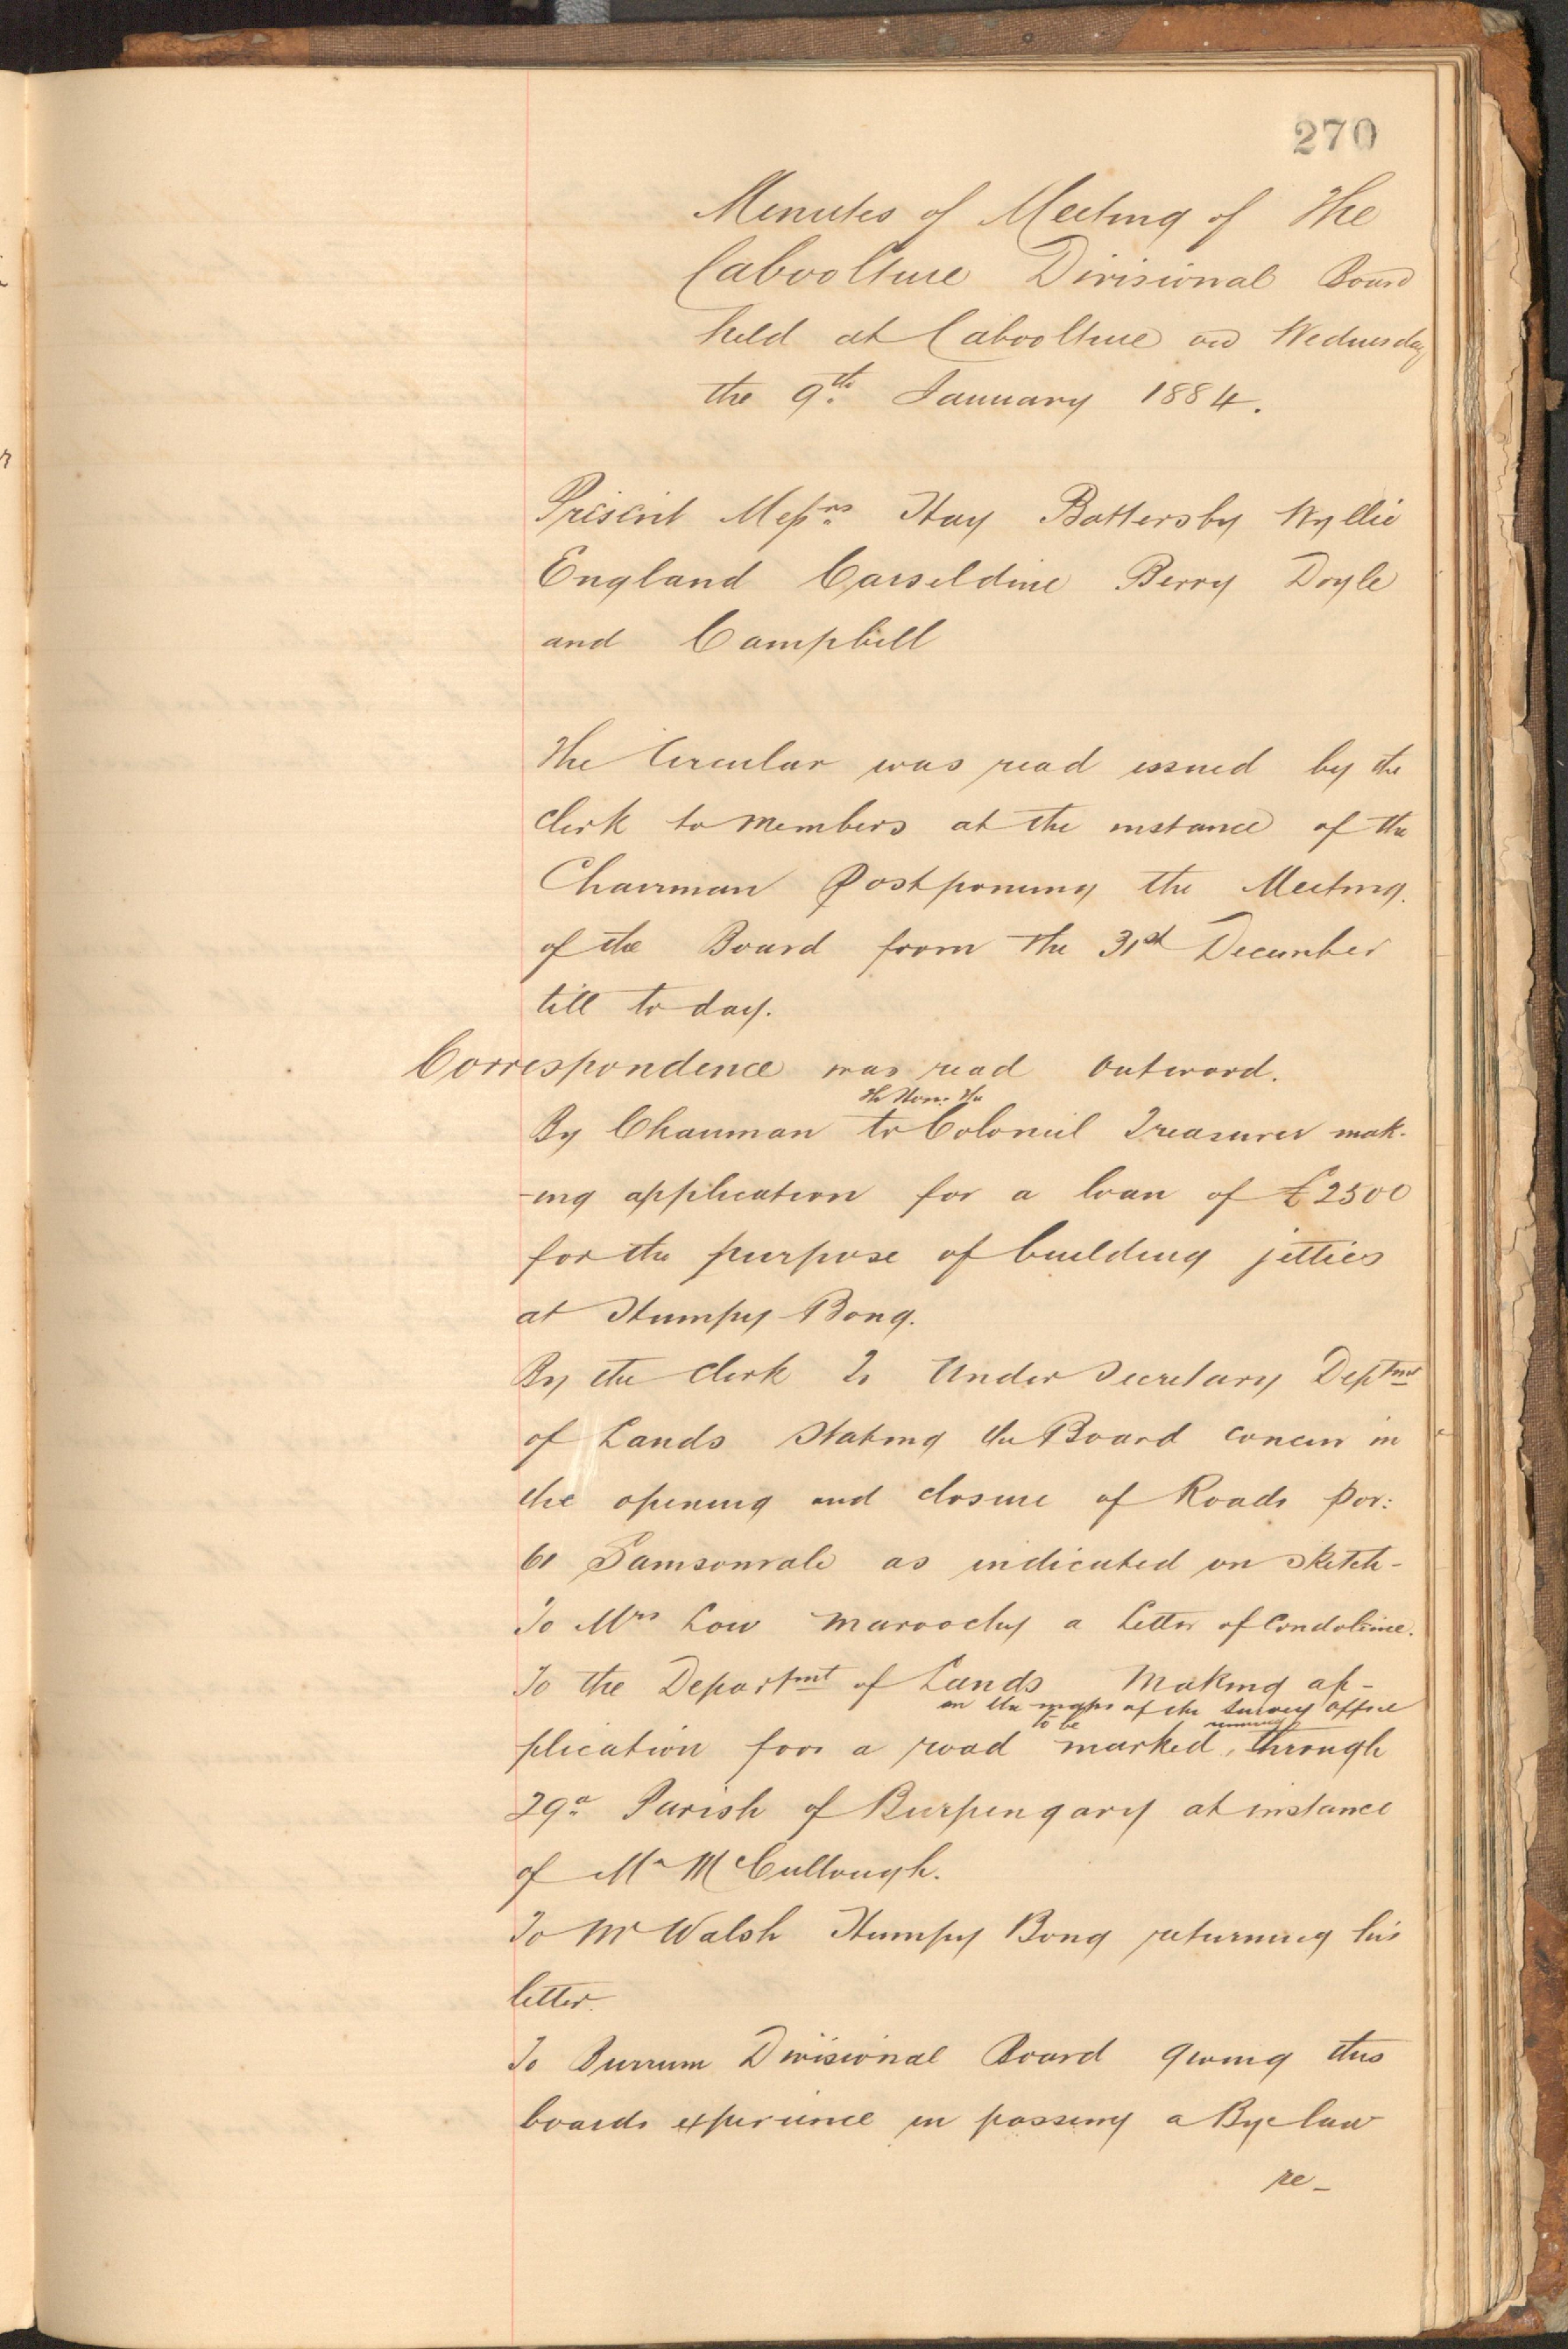 270
Minutes of Meeting of The
Caboolture Divisional Board
held at Caboolture on Wednesday
the 9th January 1884.
Present Messrs Hay Battersby Wyllie
England Carseldine Berry Doyle
and Campbell
The Circular was read issued by the
clerk to members at the instance of the
Chairman Postponing the Meeting.
of the Board from the 31st December
till to day.
Correspondence was read Outward.
The Hon: the
By Chairman to Colonial Treasurer mak-
-ing application for a loan of £2500
for the purpose of building jetties
at Humpy Bong.
By the Clerk To Under Secretary Deptmt
of Lands Stating the Board concur in
the opening and closure of Roads por:
61 Samsonvale as indicated on sketch-
To Mrs Low Maroochy a Letter of Condolence.
To the Departmt of Lands Making ap-
on the maps of the Survey office
to be running
plication for a road marked, through
29a Parish of Burpengary at instance
of Mr McCullough.
To Mr Walsh Humpy Bong returning his
letter.
To Burrum Divisional Board giving this
boards experience in passing a Bye law
re-